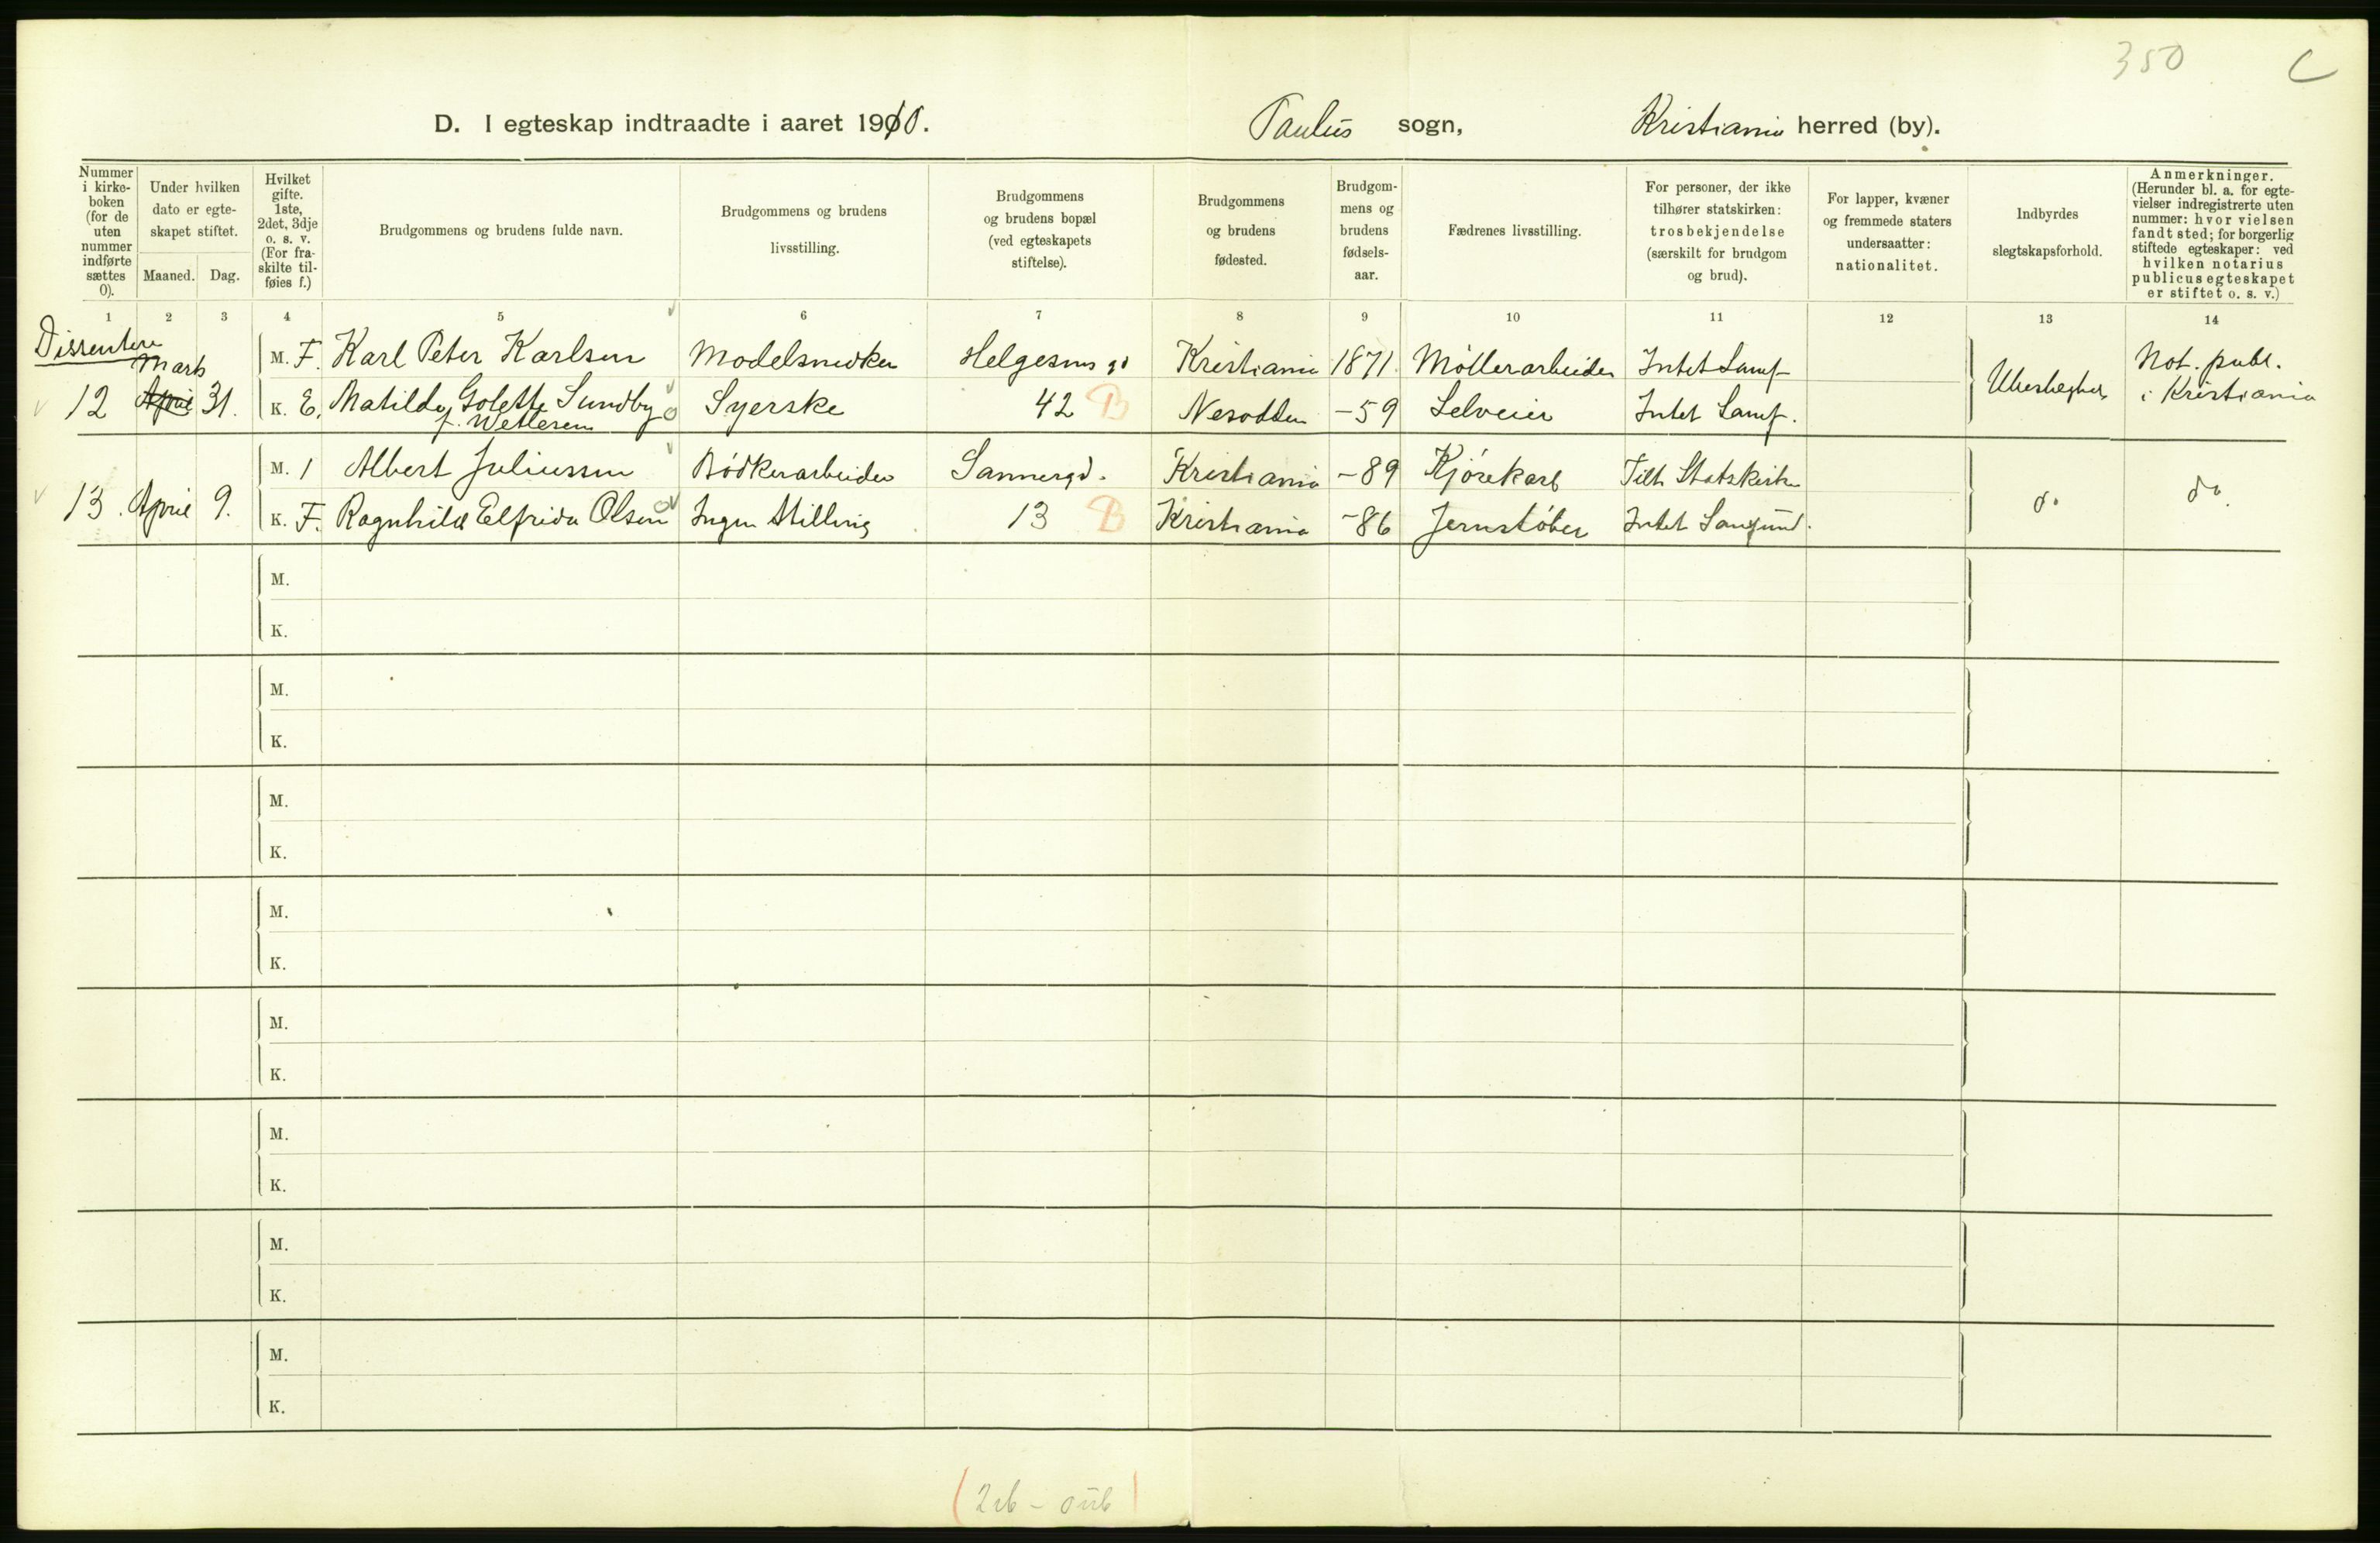 350 C
D. I egteskap indtraadte i aaret 1910. Paulus sogn, Kristiania herred (by).
Nummer i kirke-boken (for de uten nummer indførte sættes 0).
Under hvilken dato er egte-skapet stiftet.
Maaned. Dag.
Hvilket gifte. 1ste, 2det, 3dje o. s. v. (For fra-skilte til-føies f.)
Brudgommens og brudens fulde navn.
Brudgommens og brudens livsstilling.
Brudgommens og brudens bopæl (ved egteskapets stiftelse).
Brudgommens og brudens fødested.
Brudgom-mens og brudens fødsels-aar.
Fædrenes livsstilling.
For personer, der ikke tilhører statskirken: trosbekjendelse (særskilt for brudgom og brud).
For lapper, kvæner og fremmede staters undersaatter: nationalitet.
Indbyrdes slegtskapsforhold.
Anmerkninger. (Herunder bl. a. for egte-vielser indregistrerte uten nummer: hvor vielsen fandt sted; for borgerlig stiftede egteskaper: ved hvilken notarius publicus egteskapet er stiftet o. s. v.)
1 2 3 4 5 6 7 8 9 10 11 12 13 14
Dissentere
Marts
M. F. Karl Peter Karlsen Modelsnedker Helgesens gd Kristiania 1871. Møllerarbeider Intet Samf Not. publ.
12 April 31. K. E. Matilde Golette Sundbye Syerske 42 B Nesodden -59 Selveier Intet Samf. Ubeslægtet i Kristiania
f. Wetlesen
M. 1 Albert Juliussen Bødkerarbeider Sannergd. Kristiania -89 Kjørekarl Tilh Statskirke
13. April 9. K. F. Ragnhild Elfrida Olsen Ingen Stilling 13 B Kristiania -86 Jernstøber Intet Samfund. do do.
M.
K.
M.
K.
M.
K.
M.
K.
M.
K.
M.
K.
M.
K.
M.
K.